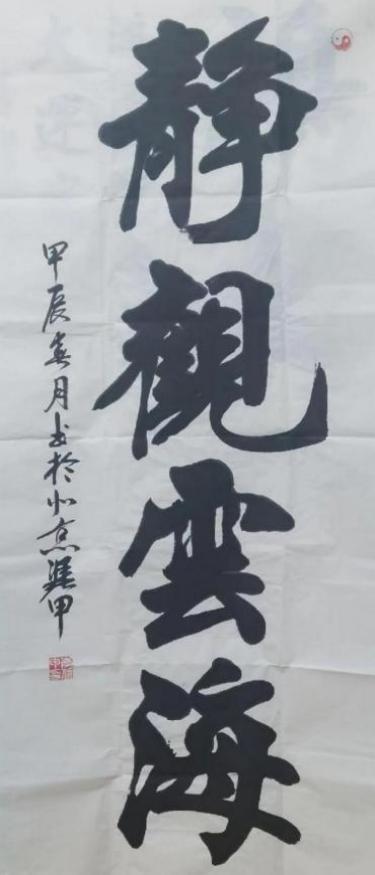 靜觀雲海
甲辰春月书於北京 甲